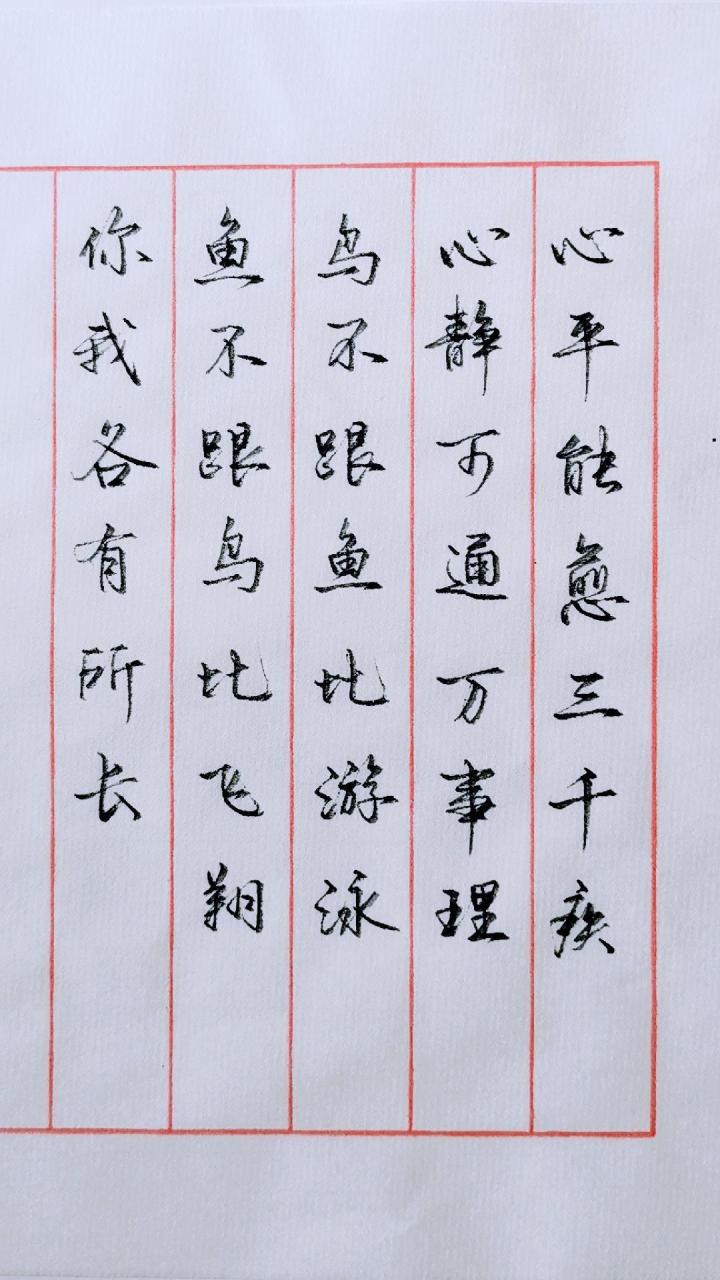 心平能愈三千疾
心静可通万事理
鸟不跟鱼比游泳
鱼不跟鸟比飞翔
你我各有所长